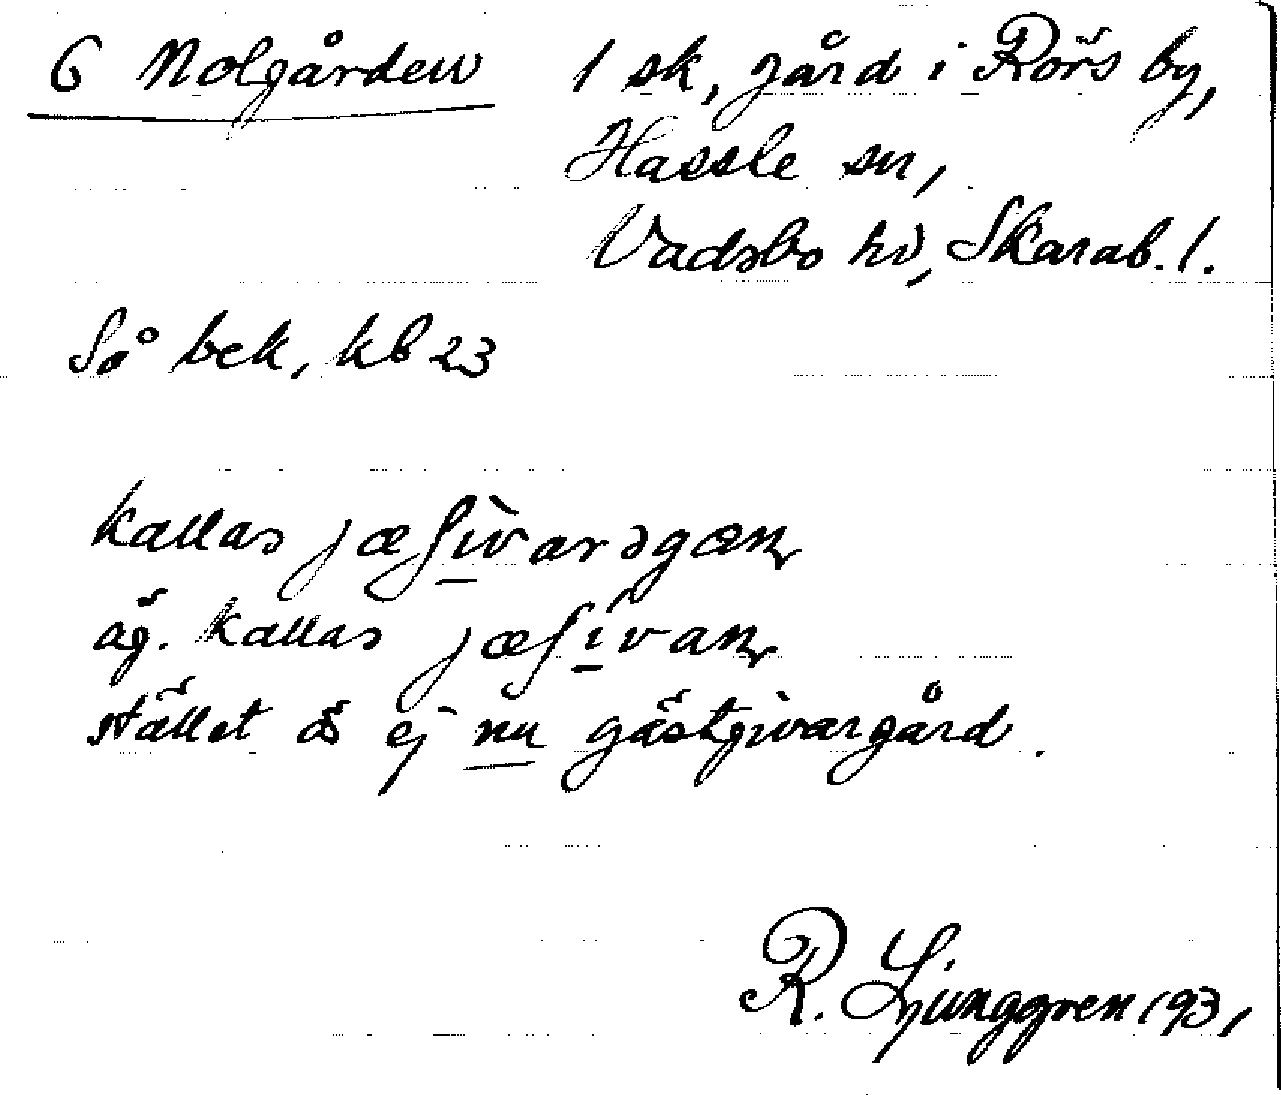 6 Nolgården 1 sk, gård i Rörs by,
Hassle sn,
Vadsbo hd, Skarab. l.
Så bek, kb 23
kallas jæʃìvarsgæn
äg. kallas jæʃívan
stället är ej nu gästgivargård.
R. Ljunggren 1931